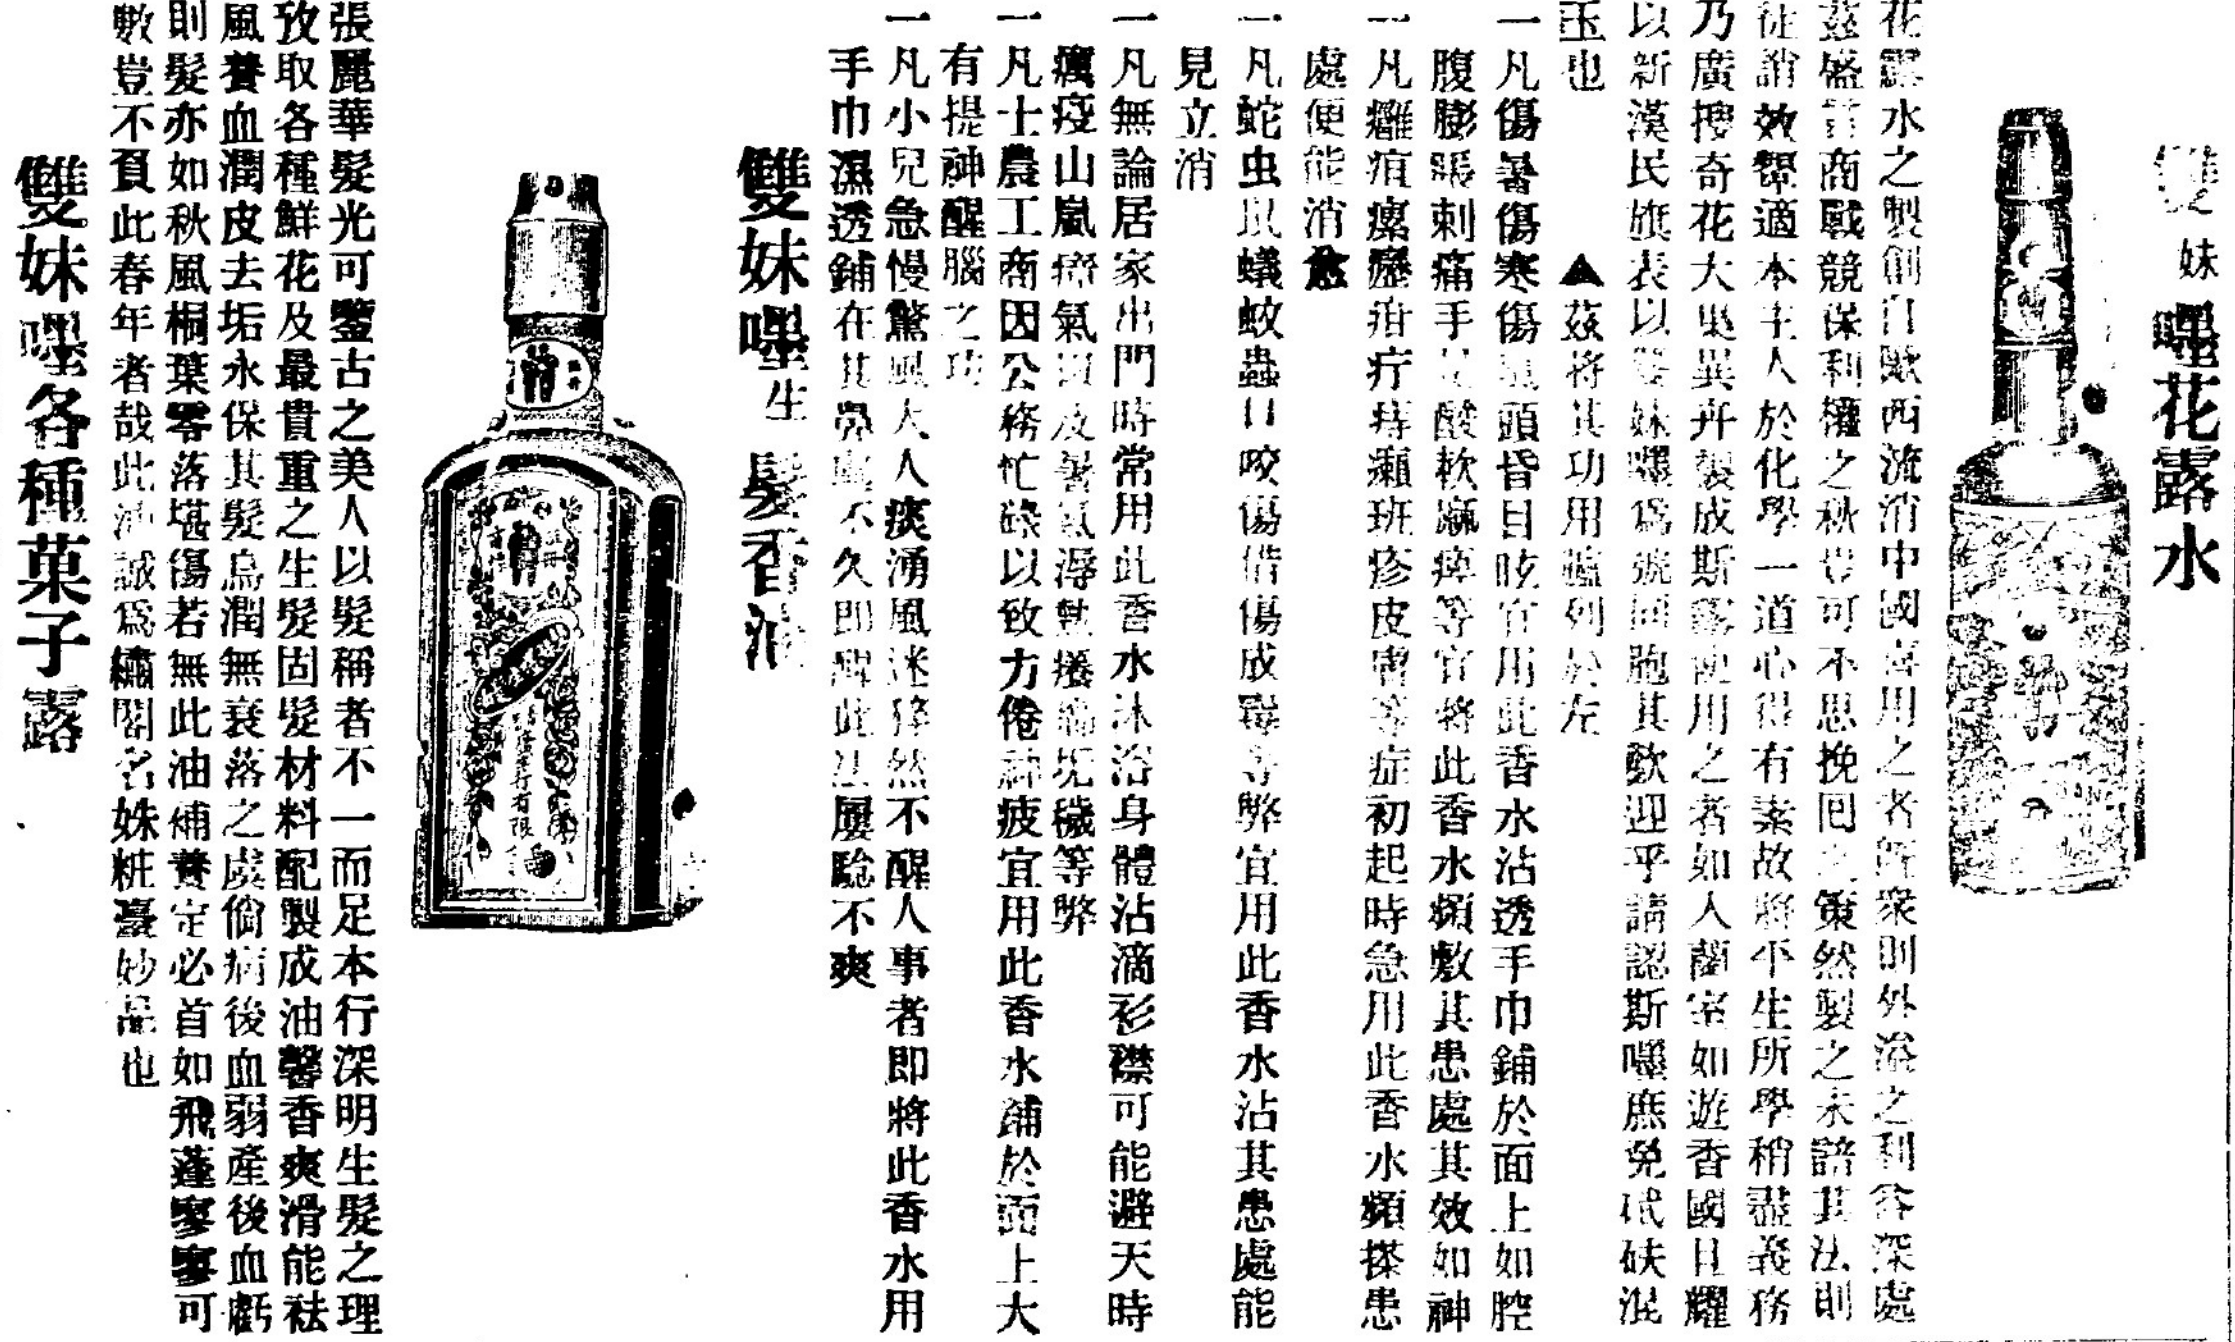 雙妹嘜花露水
花露水之製創自歐西流消中國喜用之者 衆則外溢之利答深處
茲盛言商戰競保利權之秋豈可不思挽囘之策然製之未諳其法則
徒誚效顰適本主人於化學一道心得有素故將平生所學稍盡義務
乃廣搜奇花大 異卉製成斯露使用之者如入蘭室如遊香國且耀
以新漢民旗表以雙妹嘜爲號同胞其歡迎乎請認斯嘜庶免砥砆混
玉也
▲茲將其功用臚列於左
一凡傷暑傷寒傷風頭昏目眩宜用此香水沾透手巾鋪於面上如腔
腹膨脹刺痛手足酸軟痲痺等宜將此香水頻敷其患處其效如神
一凡癰疽瘰癧疳疔痔癩班疹皮膚等症初起時急用此香水頻搽患
處便能消愈
一凡蛇虫 蟻蚊蟲口咬傷 傷成 等弊宜用此香水沾其患處能
見立消
一凡無論居家出門時常用此香水沐浴身體沾滴衫襟可能避天時
癘疫山嵐瘴氣 及暑氣 穢等弊
一凡士農工商因公務忙碌以致力倦神疲宜用此香水鋪於面上大
有提神醒腦之功
一凡小兒急慢驚風大人痰湧風迷猝然不醒人事者即將此香水用
手巾濕透鋪在其鼻 不久即醒此法屢騐不爽
雙妹嘜生髮香油
張麗華髮光可鑒古之美人以髮稱者不一而足本行深明生髮之理
攷取各種鮮花及最貴重之生髮固髮材料配製成油馨香爽滑能袪
風養血潤皮去垢永保其髮烏潤無衰落之虞倘病後血弱產後血虧
則髮亦如秋風桐葉零落堪傷若無此油補養定必首如飛蓬寥寥可
數豈不負此春年者哉此油誠爲繡閣名姝粧臺妙品也
雙妹嘜各種菓子露